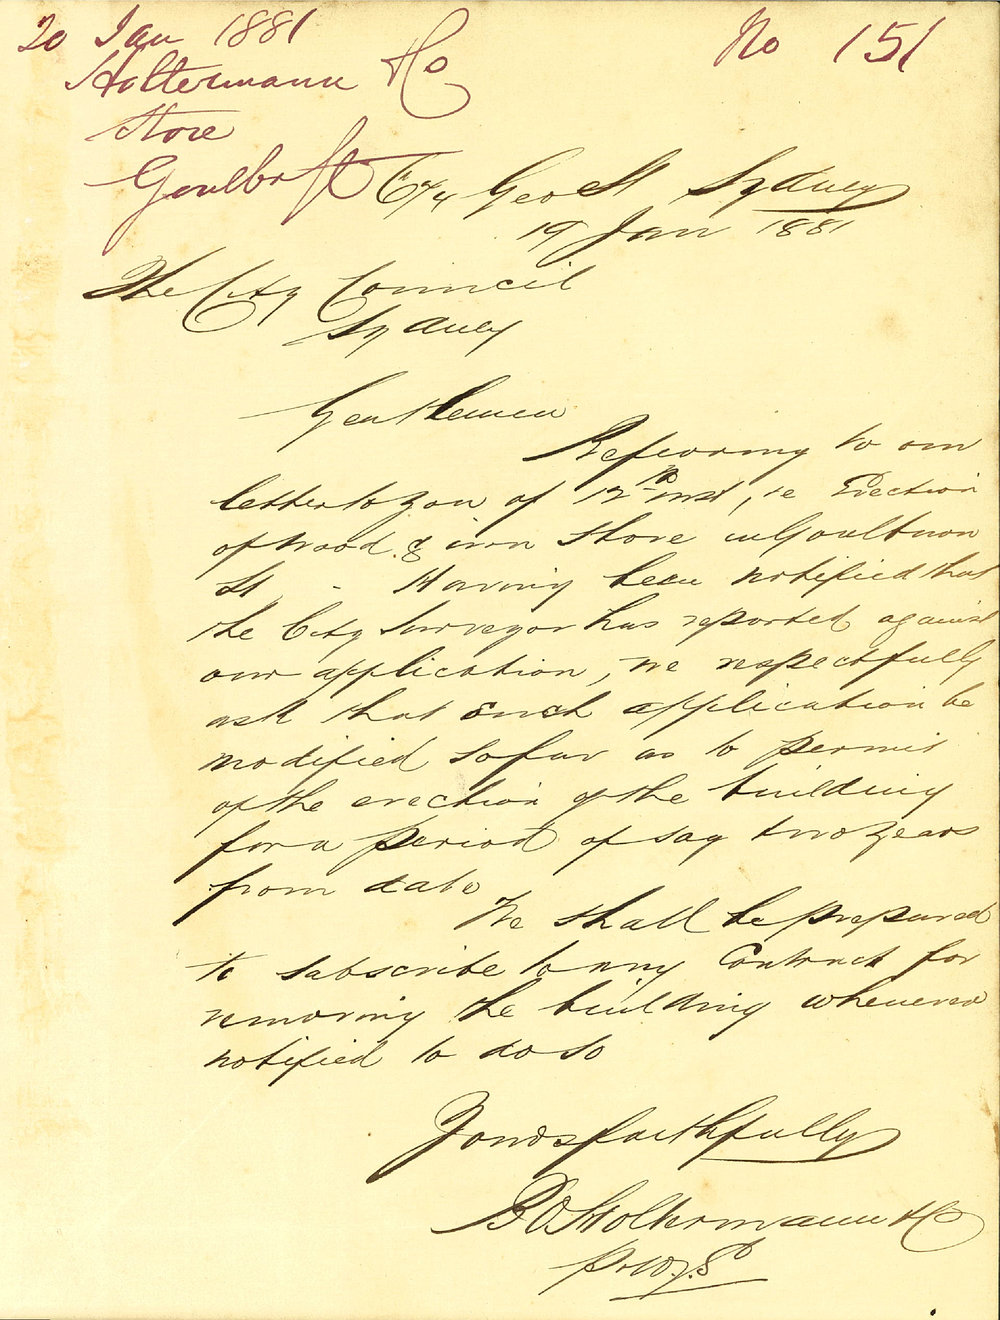 20 Jan 1881
No 151
Holtermann & Co
Store
Goulbn St
674 Geo St Sydney
19 Jan 1881
The City Council
Sydney
Gentlemen
Referring to our
letter to you of 12th inst, re Erection
of wood & iron store in Goulburn
St - Having been notified that
the City Surveyor has reported against
our application, we respectfully
ask that such application be
modified so far as to permit
of the erection of the building
for a period of say two years
from date
We shall be prepared
to subscribe to any Contract for
removing the building whenever
notified to do so
Yours faithfully
B O Holtermann & Co